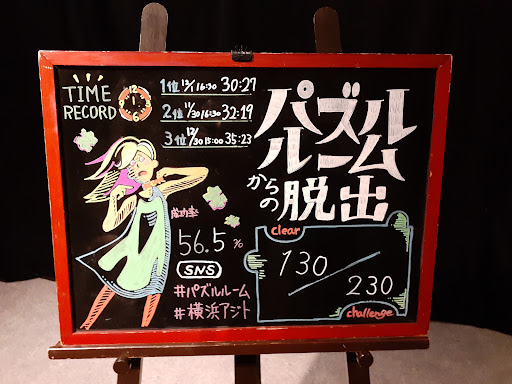 TIME
RECORD
1位 12/1 16:30 30:27
2位 11/30 16:30 32:19
3位 12/30 15:00 35:23
パズル
ルーム
からの脱出
成功率
56.5%
SNS
#パズルルーム
#横浜アジト
clear
130/230
challenge